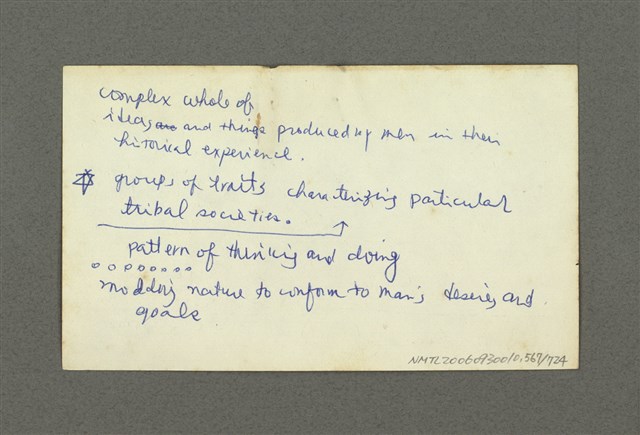 complex whole of
ideas and things produced by men in their
historical experience.
groups of traits characterizing particular
tribal societies.
pattern of thinking and doing
modding nature to conform to man's desires and
goals
NMTL20060930010,567/724